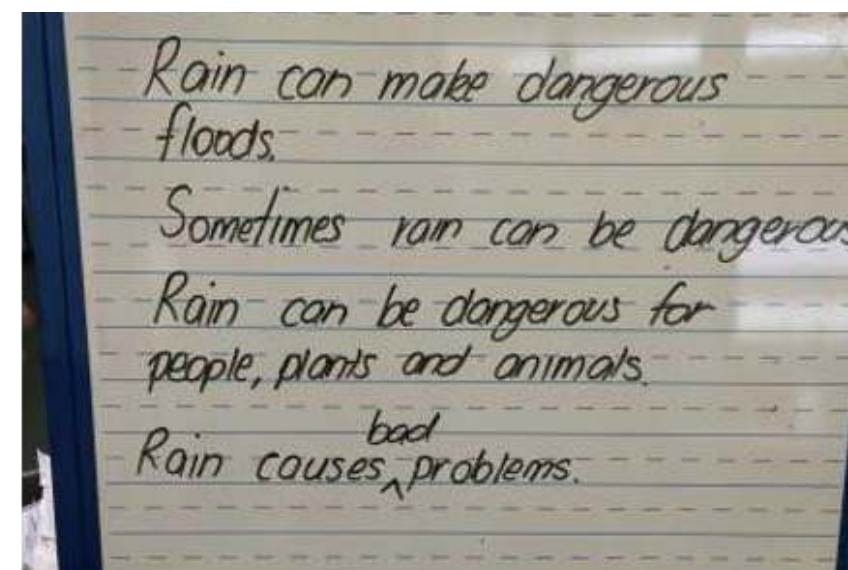 Rain can make dangerous
floods.
Sometimes rain can be dangerous
Rain can be dangerous for
people, plants and animals.
Rain causes bad problems.